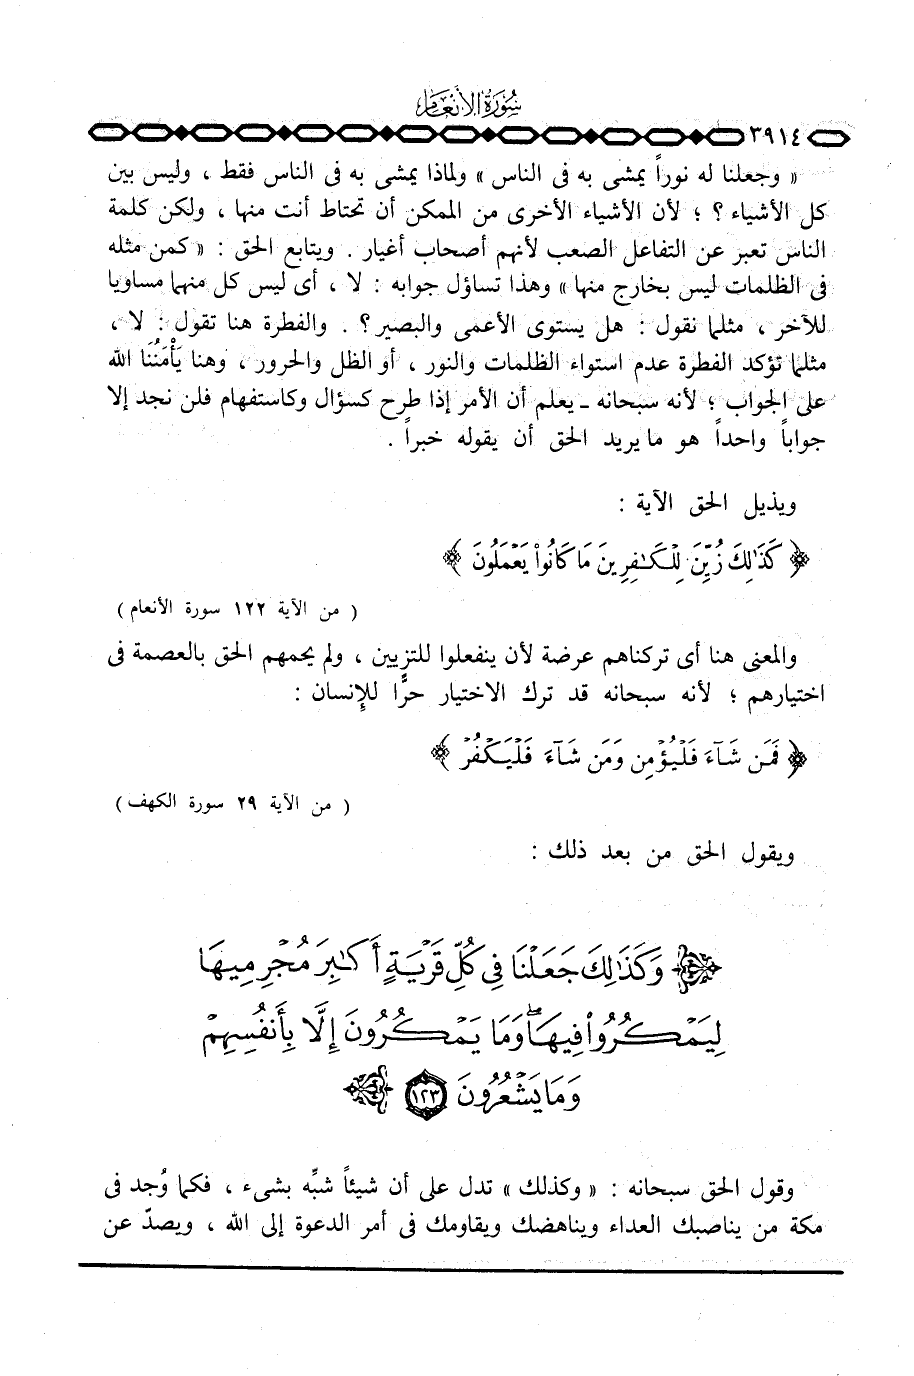 سُورَةُ الأَنْعَام
٣٩١٤
« وجعلنا له نوراً يمشى به فى الناس » ولماذا يمشى به فى الناس فقط ، وليس بين
كل الأشياء ؟ ؛ لأن الأشياء الأخرى من الممكن أن تحتاط أنت منها ، ولكن كلمة
الناس تعبر عن التفاعل الصعب لأنهم أصحاب أغيار . ويتابع الحق : « كمن مثله
فى الظلمات ليس بخارج منها » وهذا تساؤل جوابه : لا ، أى ليس كل منهما مساويا
للآخر ، مثلما نقول : هل يستوى الأعمى والبصير ؟ . والفطرة هنا تقول : لا ،
مثلما تؤكد الفطرة عدم استواء الظلمات والنور ، أو الظل والحرور ، وهنا يَأْمَنُنَا الله
على الجواب ؛ لأنه سبحانه ـ يعلم أن الأمر إذا طرح كسؤال وكاستفهام فلن نجد إلا
جواباً واحداً هو ما يريد الحق أن يقوله خبراً .
ويذيل الحق الآية :
﴿ كَذَٰلِكَ زُيِّنَ لِلْكَـٰفِرِينَ مَا كَانُوا۟ يَعْمَلُونَ ﴾
( من الآية ١٢٢ سورة الأنعام )
والمعنى هنا أى تركناهم عرضة لأن ينفعلوا للتزيين ، ولم يحمهم الحق بالعصمة فى
اختيارهم ؛ لأنه سبحانه قد ترك الاختيار حرًّا للإنسان :
﴿ فَمَن شَآءَ فَلْيُؤْمِن وَمَن شَآءَ فَلْيَكْفُرْ ﴾
( من الآية ٢٩ سورة الكهف )
ويقول الحق من بعد ذلك :
﴿ وَكَذَٰلِكَ جَعَلْنَا فِى كُلِّ قَرْيَةٍ أَكَـٰبِرَ مُجْرِمِيهَا
لِيَمْكُرُوا۟ فِيهَا ۖ وَمَا يَمْكُرُونَ إِلَّا بِأَنفُسِهِمْ
وَمَا يَشْعُرُونَ ١٢٣ ﴾
وقول الحق سبحانه : « وكذلك » تدل على أن شيئاً شبِّه بشىء ، فكما وُجد فى
مكة من يناصبك العداء ويناهضك ويقاومك فى أمر الدعوة إلى الله ، ويصدّ عن